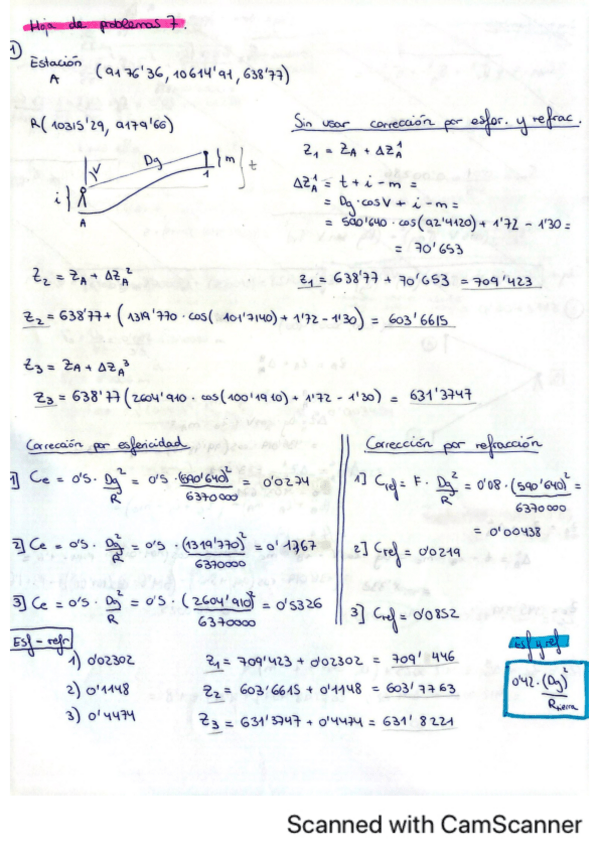 Hoja de problemas 7.
1)
Estación
A (9176'36, 10614'91, 638'77)
R(10315'29, 9179'66)
Sin usar corrección por esfer. y refrac.
Z1 = ZA + ΔZA^1
ΔZA^1 = t + i - m =
= Dg · cosV + i - m =
= 590'640 · cos(92'4120) + 1'72 - 1'30 =
= 70'653
V Dg m t
i
A 1
Z2 = ZA + ΔZA^2
Z1 = 638'77 + 70'653 = 709'423
Z2 = 638'77 + (1319'770 · cos(101'7140) + 1'72 - 1'30) = 603'6615
Z3 = ZA + ΔZA^3
Z3 = 638'77(2604'910 · cos(100'1910) + 1'72 - 1'30) = 631'3747
Corrección por esfericidad
1] Ce = 0'5 · Dg²/R = 0'5 · (590'640)²/6370000 = 0'0274
2] Ce = 0'5 · Dg²/R = 0'5 · (1319'770)²/6370000 = 0'1367
3] Ce = 0'5 · Dg²/R = 0'5 · (2604'910)²/6370000 = 0'5326
Corrección por refracción
1] Cref = F · Dg²/R = 0'08 · (590'640)²/6370000 =
= 0'00438
2] Cref = 0'0219
3] Cref = 0'0852
Esf - refr
1) 0'02302
2) 0'1148
3) 0'4474
Z1 = 709'423 + 0'02302 = 709'446
Z2 = 603'6615 + 0'1148 = 603'7763
Z3 = 631'3747 + 0'4474 = 631'8221
esf y ref
0'42 · (Dg)²/Rtierra
Scanned with CamScanner